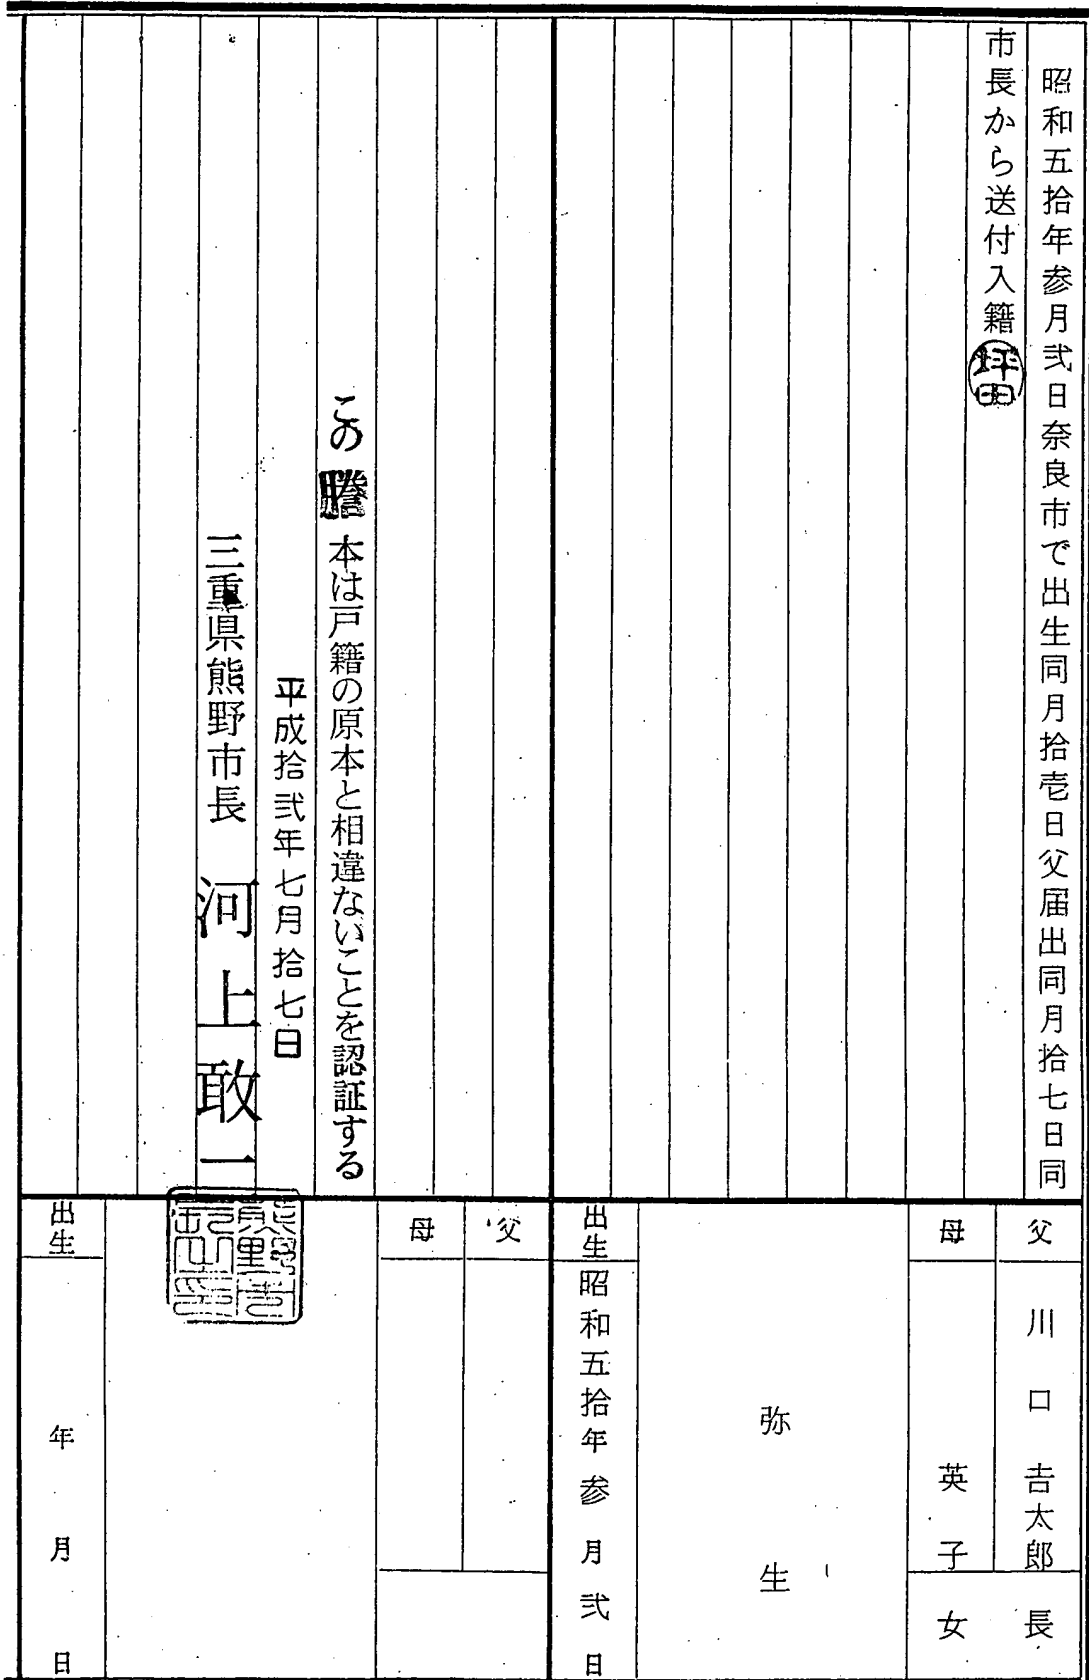 昭和五拾年参月弐日奈良市で出生同月拾壱日父届出同月拾七日同
市長から送付入籍 坪田
父 川口吉太郎
母 英子
長
女
弥生
出生 昭和五拾年参月弐日
この謄本は戸籍の原本と相違ないことを認証する
平成拾弐年七月拾七日
三重県熊野市長 河上敢二
熊野市長之印
父
母
出生 年 月 日